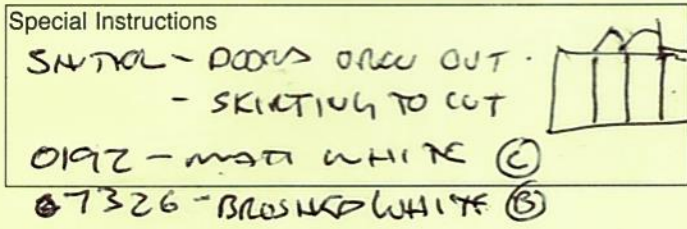 Special Instructions
- DOORS OPEN OUT.
- SKIRTING TO CUT
0192 - MATT WHITE (C)
07326 - BRUSHED WHITE (B)